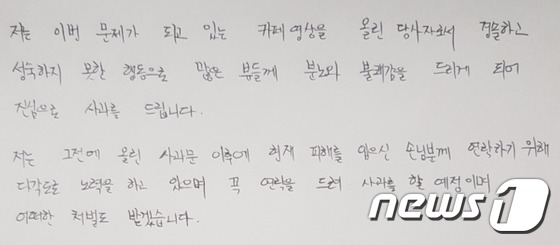 저는 이번 문제가 되고 있는 카페영상을 올린 당사자로서 경솔하고
성숙하지 못한 행동으로 많은 분들께 분노와 불쾌감을 드리게 되어
진심으로 사과를 드립니다.
저는 그전에 올린 사과문 이후에 현재 피해를 입으신 손님분께 연락하기 위해
다각도로 노력을 하고 있으며 꼭 연락을 드려 사과를 할 예정이며
어떠한 처벌도 받겠습니다.
news1